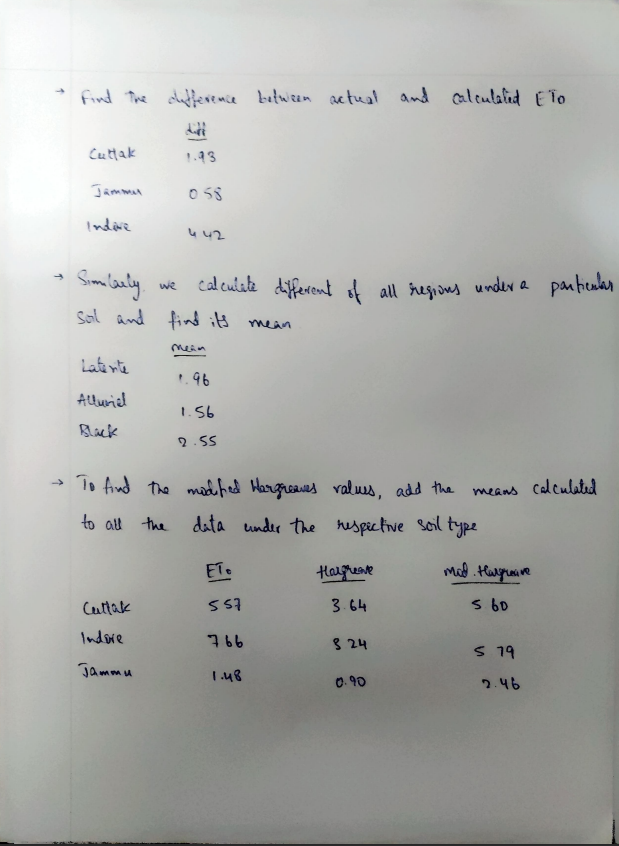 → Find the difference between actual and calculated ETo
diff
Cuttak 1.93
Jammu 0.58
Indore 4.42
→ Similarly. we calculate different of all regions under a particular
Soil and find its mean
mean
Laterite 1.96
Alluvial 1.56
Black 2.55
→ To find the modified Hargreaves values, add the means calculated
to all the data under the respective soil type
ETo Hargreave Mod. Hargreave
Cuttak 5.57 3.64 5.60
Indore 7.66 3.24 5.79
Jammu 1.48 0.90 2.46